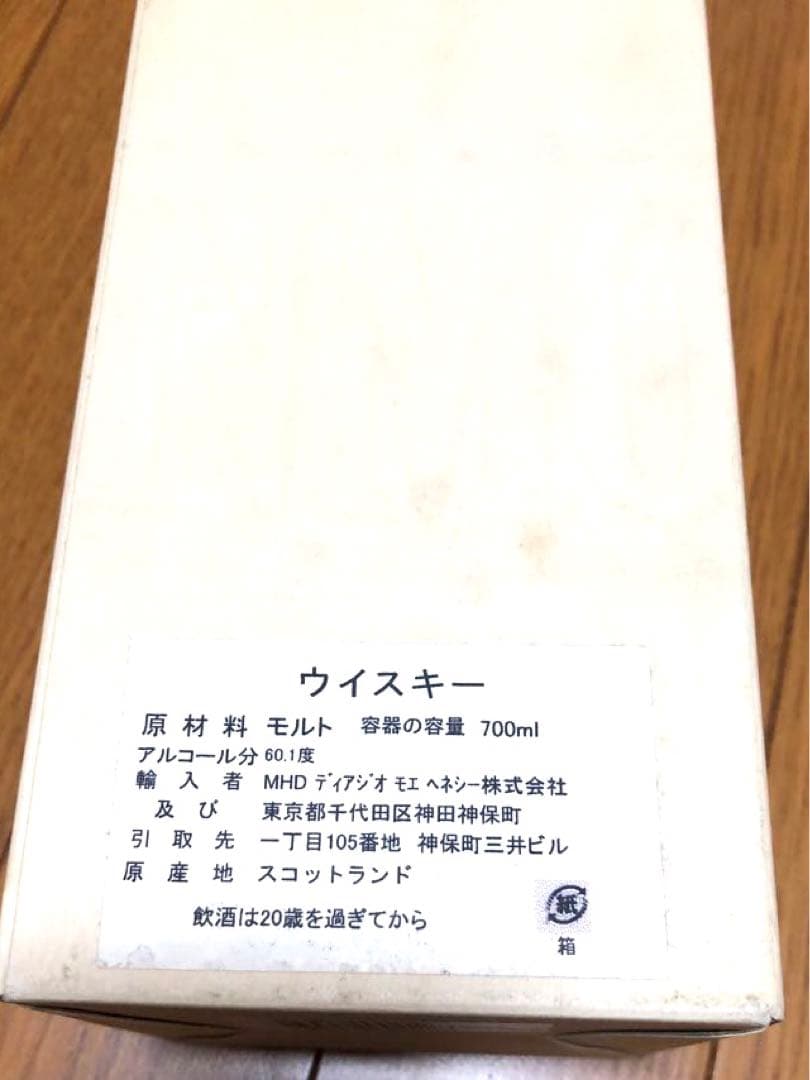 ウイスキー
原材料 モルト 容器の容量 700ml
アルコール分 60.1度
輸入者 MHD ディアジオ モエ ヘネシー株式会社
及び 東京都千代田区神田神保町
引取先 一丁目105番地 神保町三井ビル
原産地 スコットランド
飲酒は20歳を過ぎてから
紙
箱